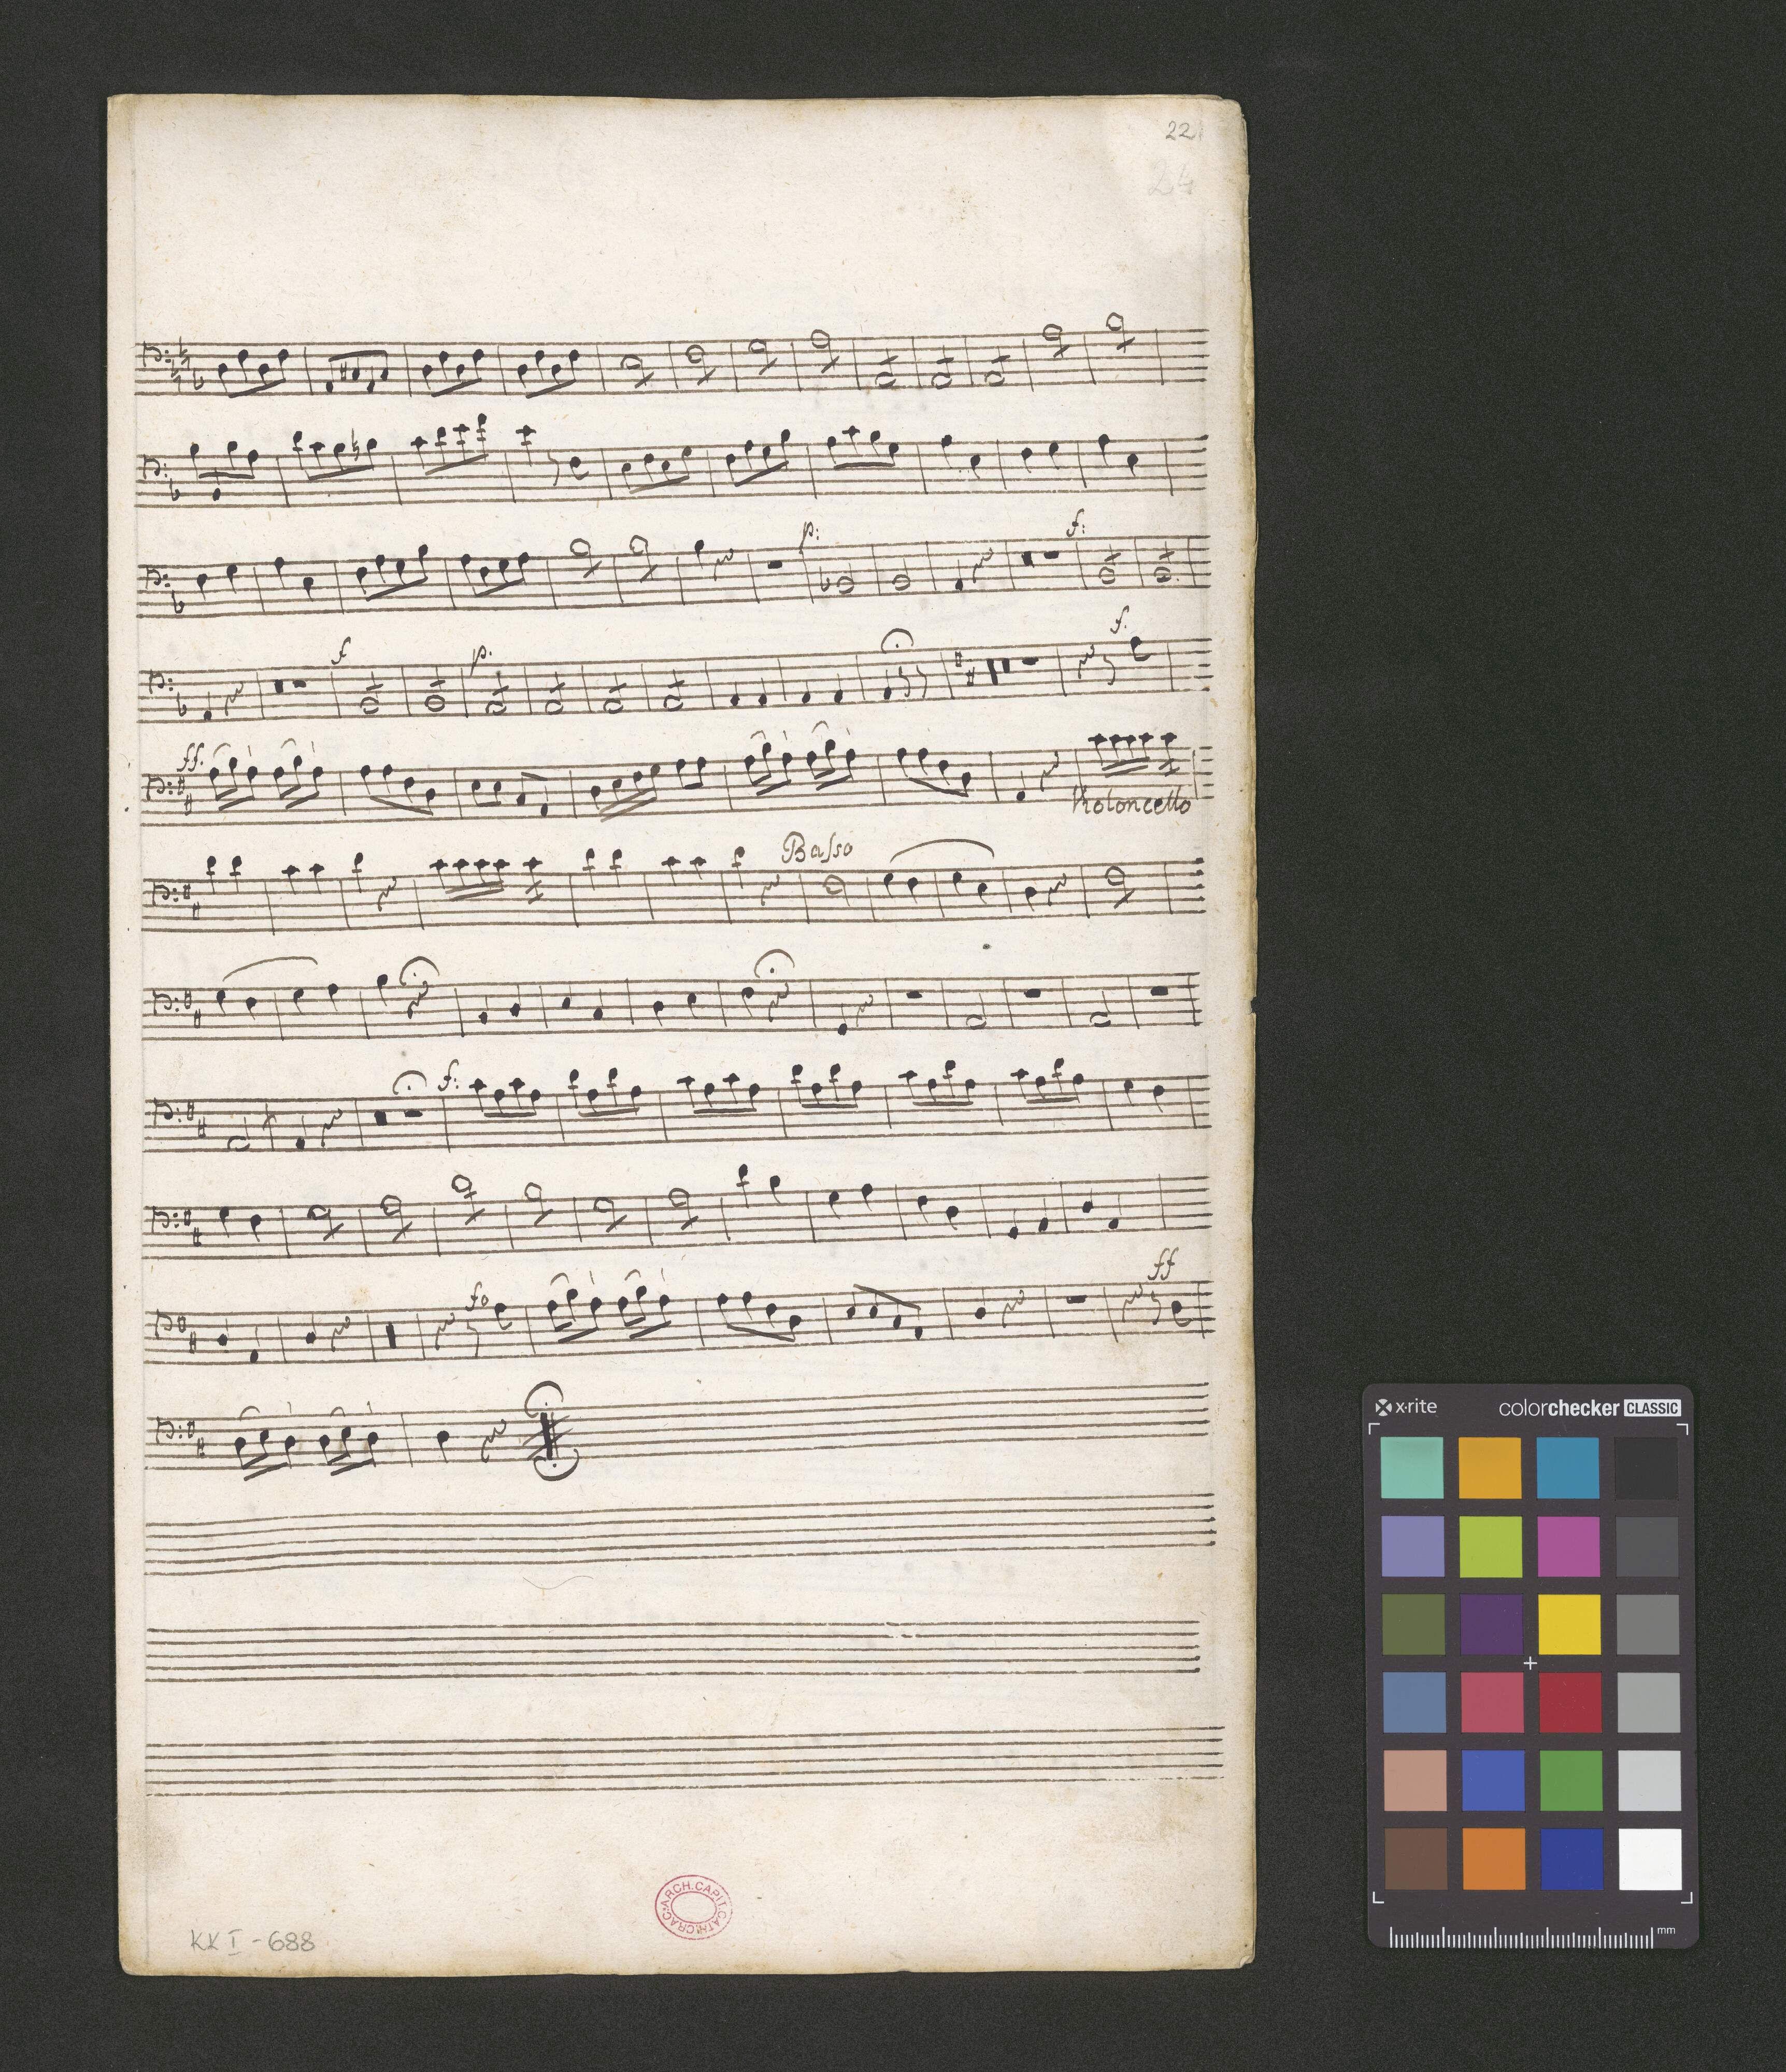 22
24
p:
f:
f
p.
f.
ff.
Violoncello
Basso
f:
fo
ff
ARCH. CAPIT. CATH. CRAC.
KK I - 688
x·rite colorchecker CLASSIC
mm